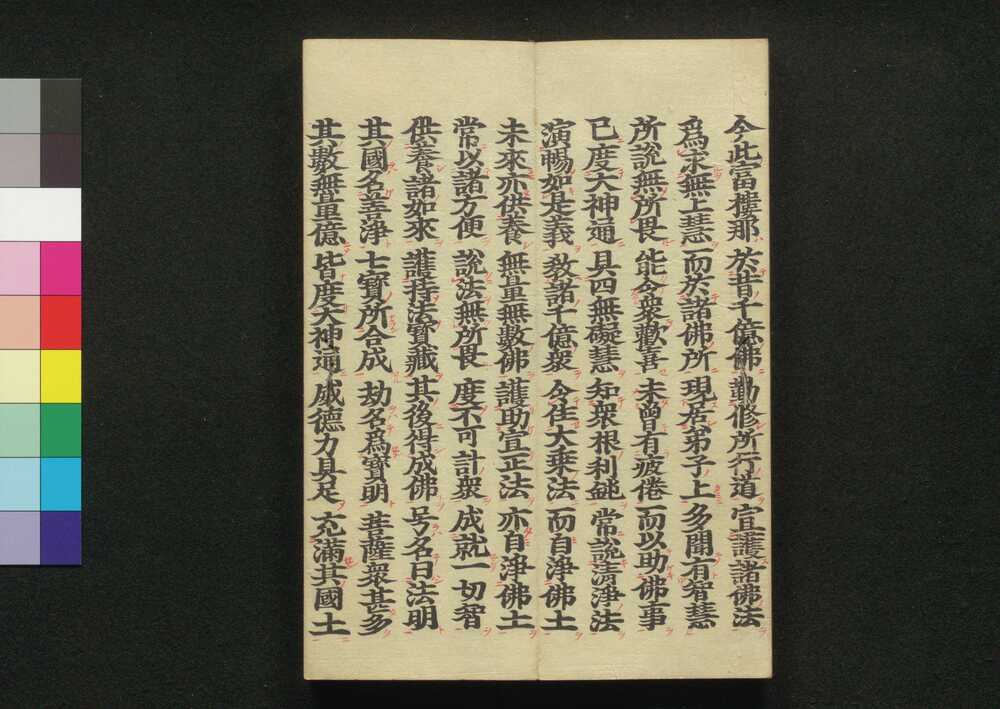 今此富樓那 於昔千億佛 勤修所行道 宣護諸佛法
為求無上慧 而於諸佛所 現居弟子上 多聞有智慧
所說無所畏 能令衆歡喜 未曾有疲倦 而以助佛事
已度大神通 具四無礙慧 知衆根利鈍 常說清淨法
演暢如是義 教諸千億衆 令住大乘法 而自淨佛土
未來亦供養 無量無數佛 護助宣正法 亦自淨佛土
常以諸方便 說法無所畏 度不可計衆 成就一切智
供養諸如來 護持法寶藏 其後得成佛 号名曰法明
其國名善淨 七寶所合成 劫名為寶明 菩薩衆甚多
其數無量億 皆度大神通 威德力具足 充滿其國土